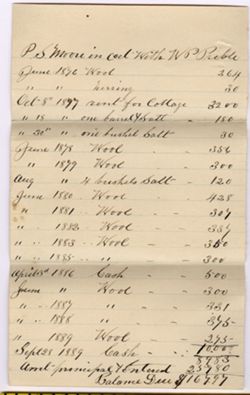 P. S. Moore in act with Wm Preble
June 1876 Wool 364
" " herring 30
Oct 8th 1877 rent for Cottage 3200
" 18 " one barrel Salt - 180
" 30th " one bushel Salt - 30
June 1878 Wool - 336
" 1879 Wool - 300
Aug " 4 bushels Salt - 120
June 1880 Wool - 428
" 1881 Wool - 307
" 1882 Wool -
" 1883 .. Wool -
" 1885 .. " - 300
April 1886 Cash - 500
June " Wool - 300
" 1887 " 321
" 1888 " 375
" 1889 Wool - 275
Sept 28 1889 Cash - 10,00
Amt principal & Entered
Balance Due $